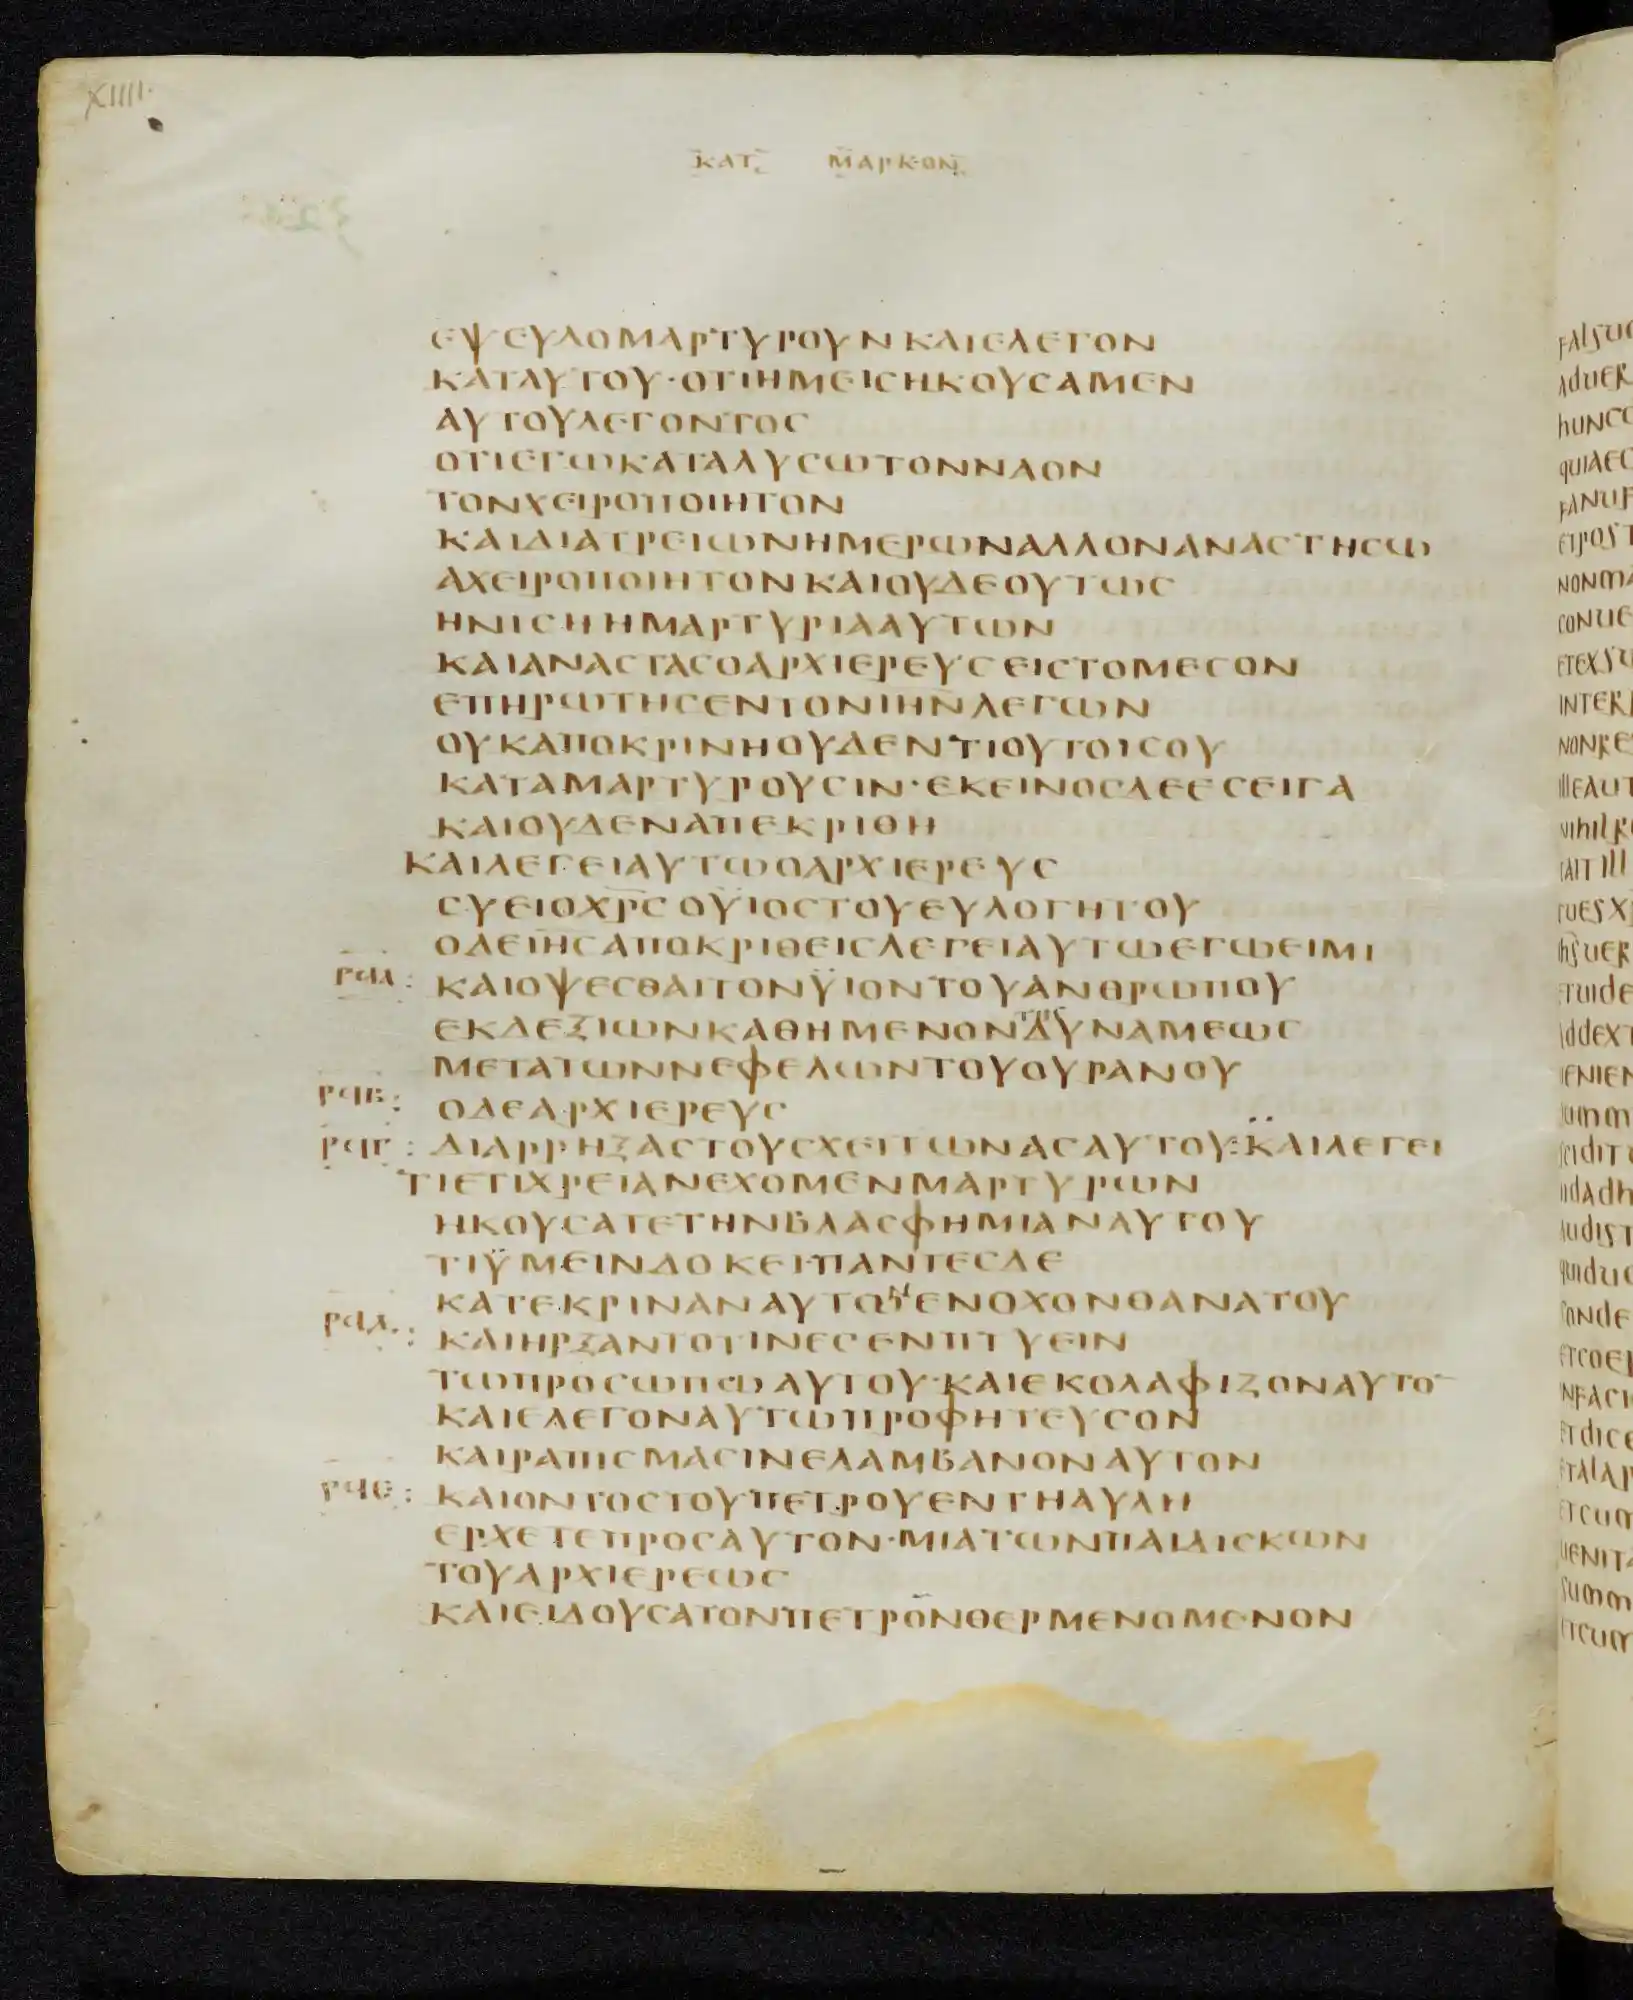 XIIII.
ΚΑΤ ΜΑΡΚΟΝ
ΕΨΕΥΔΟΜΑΡΤΥΡΟΥΝΚΑΙΕΛΕΓΟΝ
ΚΑΤΑΥΤΟΥ·ΟΤΙΗΜΕΙϹΗΚΟΥϹΑΜΕΝ
ΑΥΤΟΥΛΕΓΟΝΤΟϹ
ΟΤΙΕΓΩΚΑΤΑΛΥϹΩΤΟΝΝΑΟΝ
ΤΟΝΧΕΙΡΟΠΟΙΗΤΟΝ
ΚΑΙΔΙΑΤΡΕΙΩΝΗΜΕΡΩΝΑΛΛΟΝΑΝΑϹΤΗϹΩ
ΑΧΕΙΡΟΠΟΙΗΤΟΝΚΑΙΟΥΔΕΟΥΤΩϹ
ΗΝΙϹΗΗΜΑΡΤΥΡΙΑΑΥΤΩΝ
ΚΑΙΑΝΑϹΤΑϹΟΑΡΧΙΕΡΕΥϹΕΙϹΤΟΜΕϹΟΝ
ΕΠΗΡΩΤΗϹΕΝΤΟΝΙΗΝΛΕΓΩΝ
ΟΥΚΑΠΟΚΡΙΝΗΟΥΔΕΝΤΙΟΥΤΟΙϹΟΥ
ΚΑΤΑΜΑΡΤΥΡΟΥϹΙΝ·ΕΚΕΙΝΟϹΔΕΕϹΕΙΓΑ
ΚΑΙΟΥΔΕΝΑΠΕΚΡΙΘΗ
ΚΑΙΛΕΓΕΙΑΥΤΩΟΑΡΧΙΕΡΕΥϹ
ϹΥΕΙΟΧΡϹΟΥΙΟϹΤΟΥΕΥΛΟΓΗΤΟΥ
ΟΔΕΙΗϹΑΠΟΚΡΙΘΕΙϹΛΕΓΕΙΑΥΤΩΕΓΩΕΙΜΙ
ΡϤΑ: ΚΑΙΟΨΕϹΘΑΙΤΟΝΫΙΟΝΤΟΥΑΝΘΡΩΠΟΥ
ΕΚΔΕΞΙΩΝΚΑΘΗΜΕΝΟΝΤΗϹΔΥΝΑΜΕΩϹ
ΜΕΤΑΤΩΝΝΕΦΕΛΩΝΤΟΥΟΥΡΑΝΟΥ
ΡϤΒ: ΟΔΕΑΡΧΙΕΡΕΥϹ
ΡϤΓ: ΔΙΑΡΡΗΞΑϹΤΟΥϹΧΕΙΤΩΝΑϹΑΥΤΟΥ:ΚΑΙΛΕΓΕΙ
ΤΙΕΤΙΧΡΕΙΑΝΕΧΟΜΕΝΜΑΡΤΥΡΩΝ
ΗΚΟΥϹΑΤΕΤΗΝΒΛΑϹΦΗΜΙΑΝΑΥΤΟΥ
ΤΙΫΜΕΙΝΔΟΚΕΙ·ΠΑΝΤΕϹΔΕ
ΚΑΤΕΚΡΙΝΑΝΑΥΤΩΝΕΝΟΧΟΝΘΑΝΑΤΟΥ
ΡϤΔ: ΚΑΙΗΡΞΑΝΤΟΤΙΝΕϹΕΝΠΤΥΕΙΝ
ΤΩΠΡΟϹΩΠΩΑΥΤΟΥ·ΚΑΙΕΚΟΛΑΦΙΖΟΝΑΥΤΟ
ΚΑΙΕΛΕΓΟΝΑΥΤΩΠΡΟΦΗΤΕΥϹΟΝ
ΚΑΙΡΑΠΙϹΜΑϹΙΝΕΛΑΜΒΑΝΟΝΑΥΤΟΝ
ΡϤΕ: ΚΑΙΟΝΤΟϹΤΟΥΠΕΤΡΟΥΕΝΤΗΑΥΛΗ
ΕΡΧΕΤΕΠΡΟϹΑΥΤΟΝ·ΜΙΑΤΩΝΠΑΙΔΙϹΚΩΝ
ΤΟΥΑΡΧΙΕΡΕΩϹ
ΚΑΙΕΙΔΟΥϹΑΤΟΝΠΕΤΡΟΝΘΕΡΜΕΝΟΜΕΝΟΝ